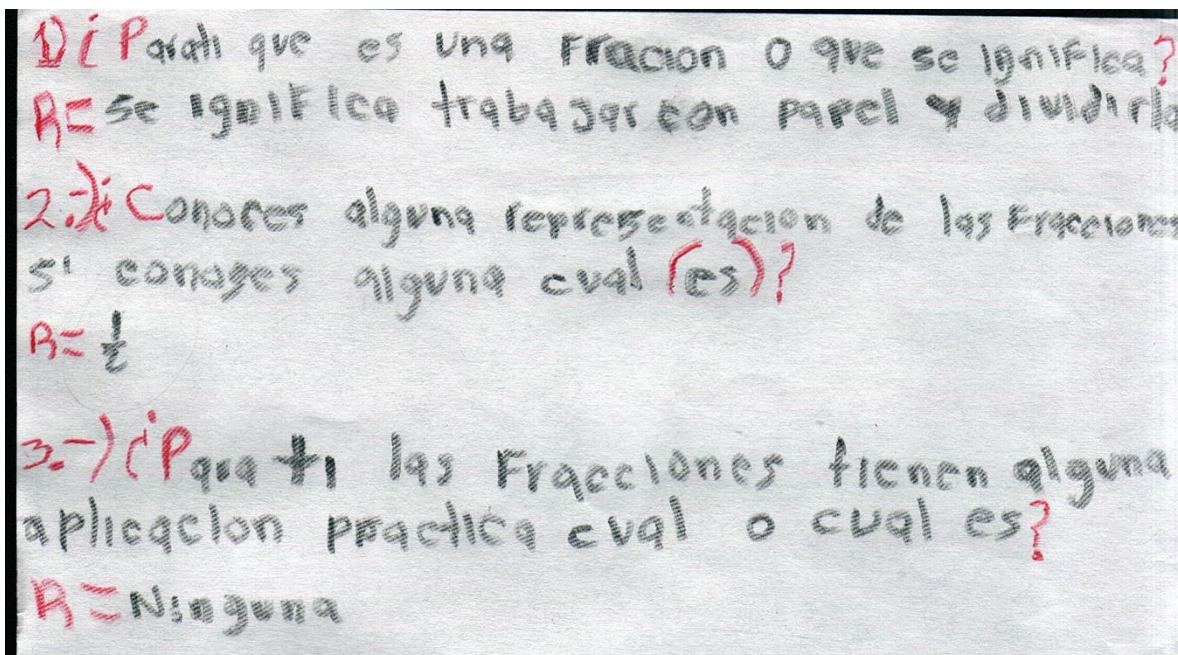 1) ¿Parati que es una Fracion o que se ignifica?
R= se ignifica trabajar con papel y dividirlo
2.-)¿Conoces alguna representacion de las Fracciones
si conoges alguna cual (es)?
R= 1/2
3.-) ¿Para ti las Fracciones tienen alguna
aplicacion practica cual o cual es?
R=Ninguna